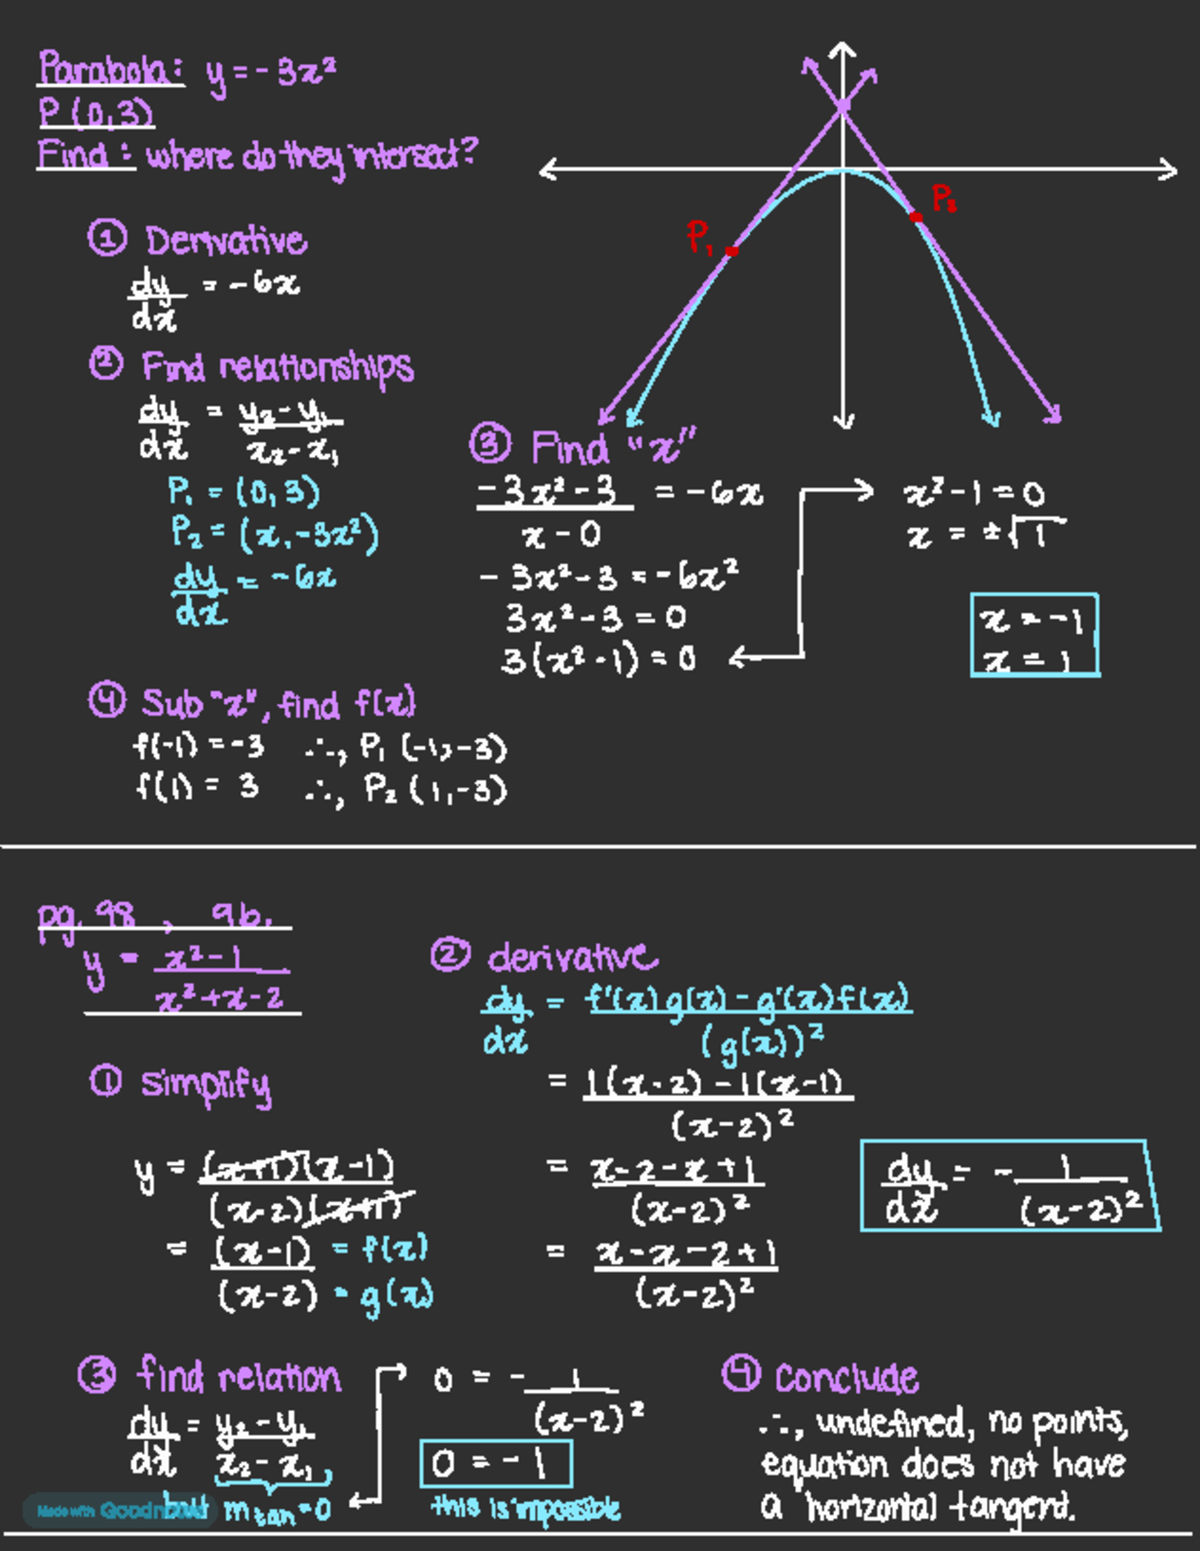 Parabola: y = -3x²
P (0,3)
Find: where do they intersect?
① Derivative
dy/dx = -6x
② Find relationships
dy/dx = y₂-y₁/x₂-x₁
P₁ = (0,3)
P₂ = (x,-3x²)
dy/dx = -6x
P₁
P₂
③ Find "x"
-3x²-3/x-0 = -6x
-3x²-3 = -6x²
3x²-3 = 0
3(x²-1) = 0
x²-1 = 0
x = ±√1
x = -1
x = 1
④ Sub "x", find f(x)
f(-1) = -3 ∴, P₁ (-1,-3)
f(1) = 3 ∴, P₂ (1,-3)
pg. 98, 9b.
y = x²-1/x²+x-2
① simplify
y = (x+1)(x-1)/(x-2)(x+1)
= (x-1)/(x-2) = f(x) = g(x)
② derivative
dy/dx = f'(x)g(x)-g'(x)f(x)/(g(x))²
= 1(x-2)-1(x-1)/(x-2)²
= x-2-x+1/(x-2)²
= x-x-2+1/(x-2)²
dy/dx = -1/(x-2)²
③ find relation
dy/dx = y₂-y₁/x₂-x₁
but m tan = 0
0 = -1/(x-2)²
0 = -1
this is impossible
④ conclude
∴, undefined, no points,
equation does not have
a horizontal tangent.
Made with Goodnotes